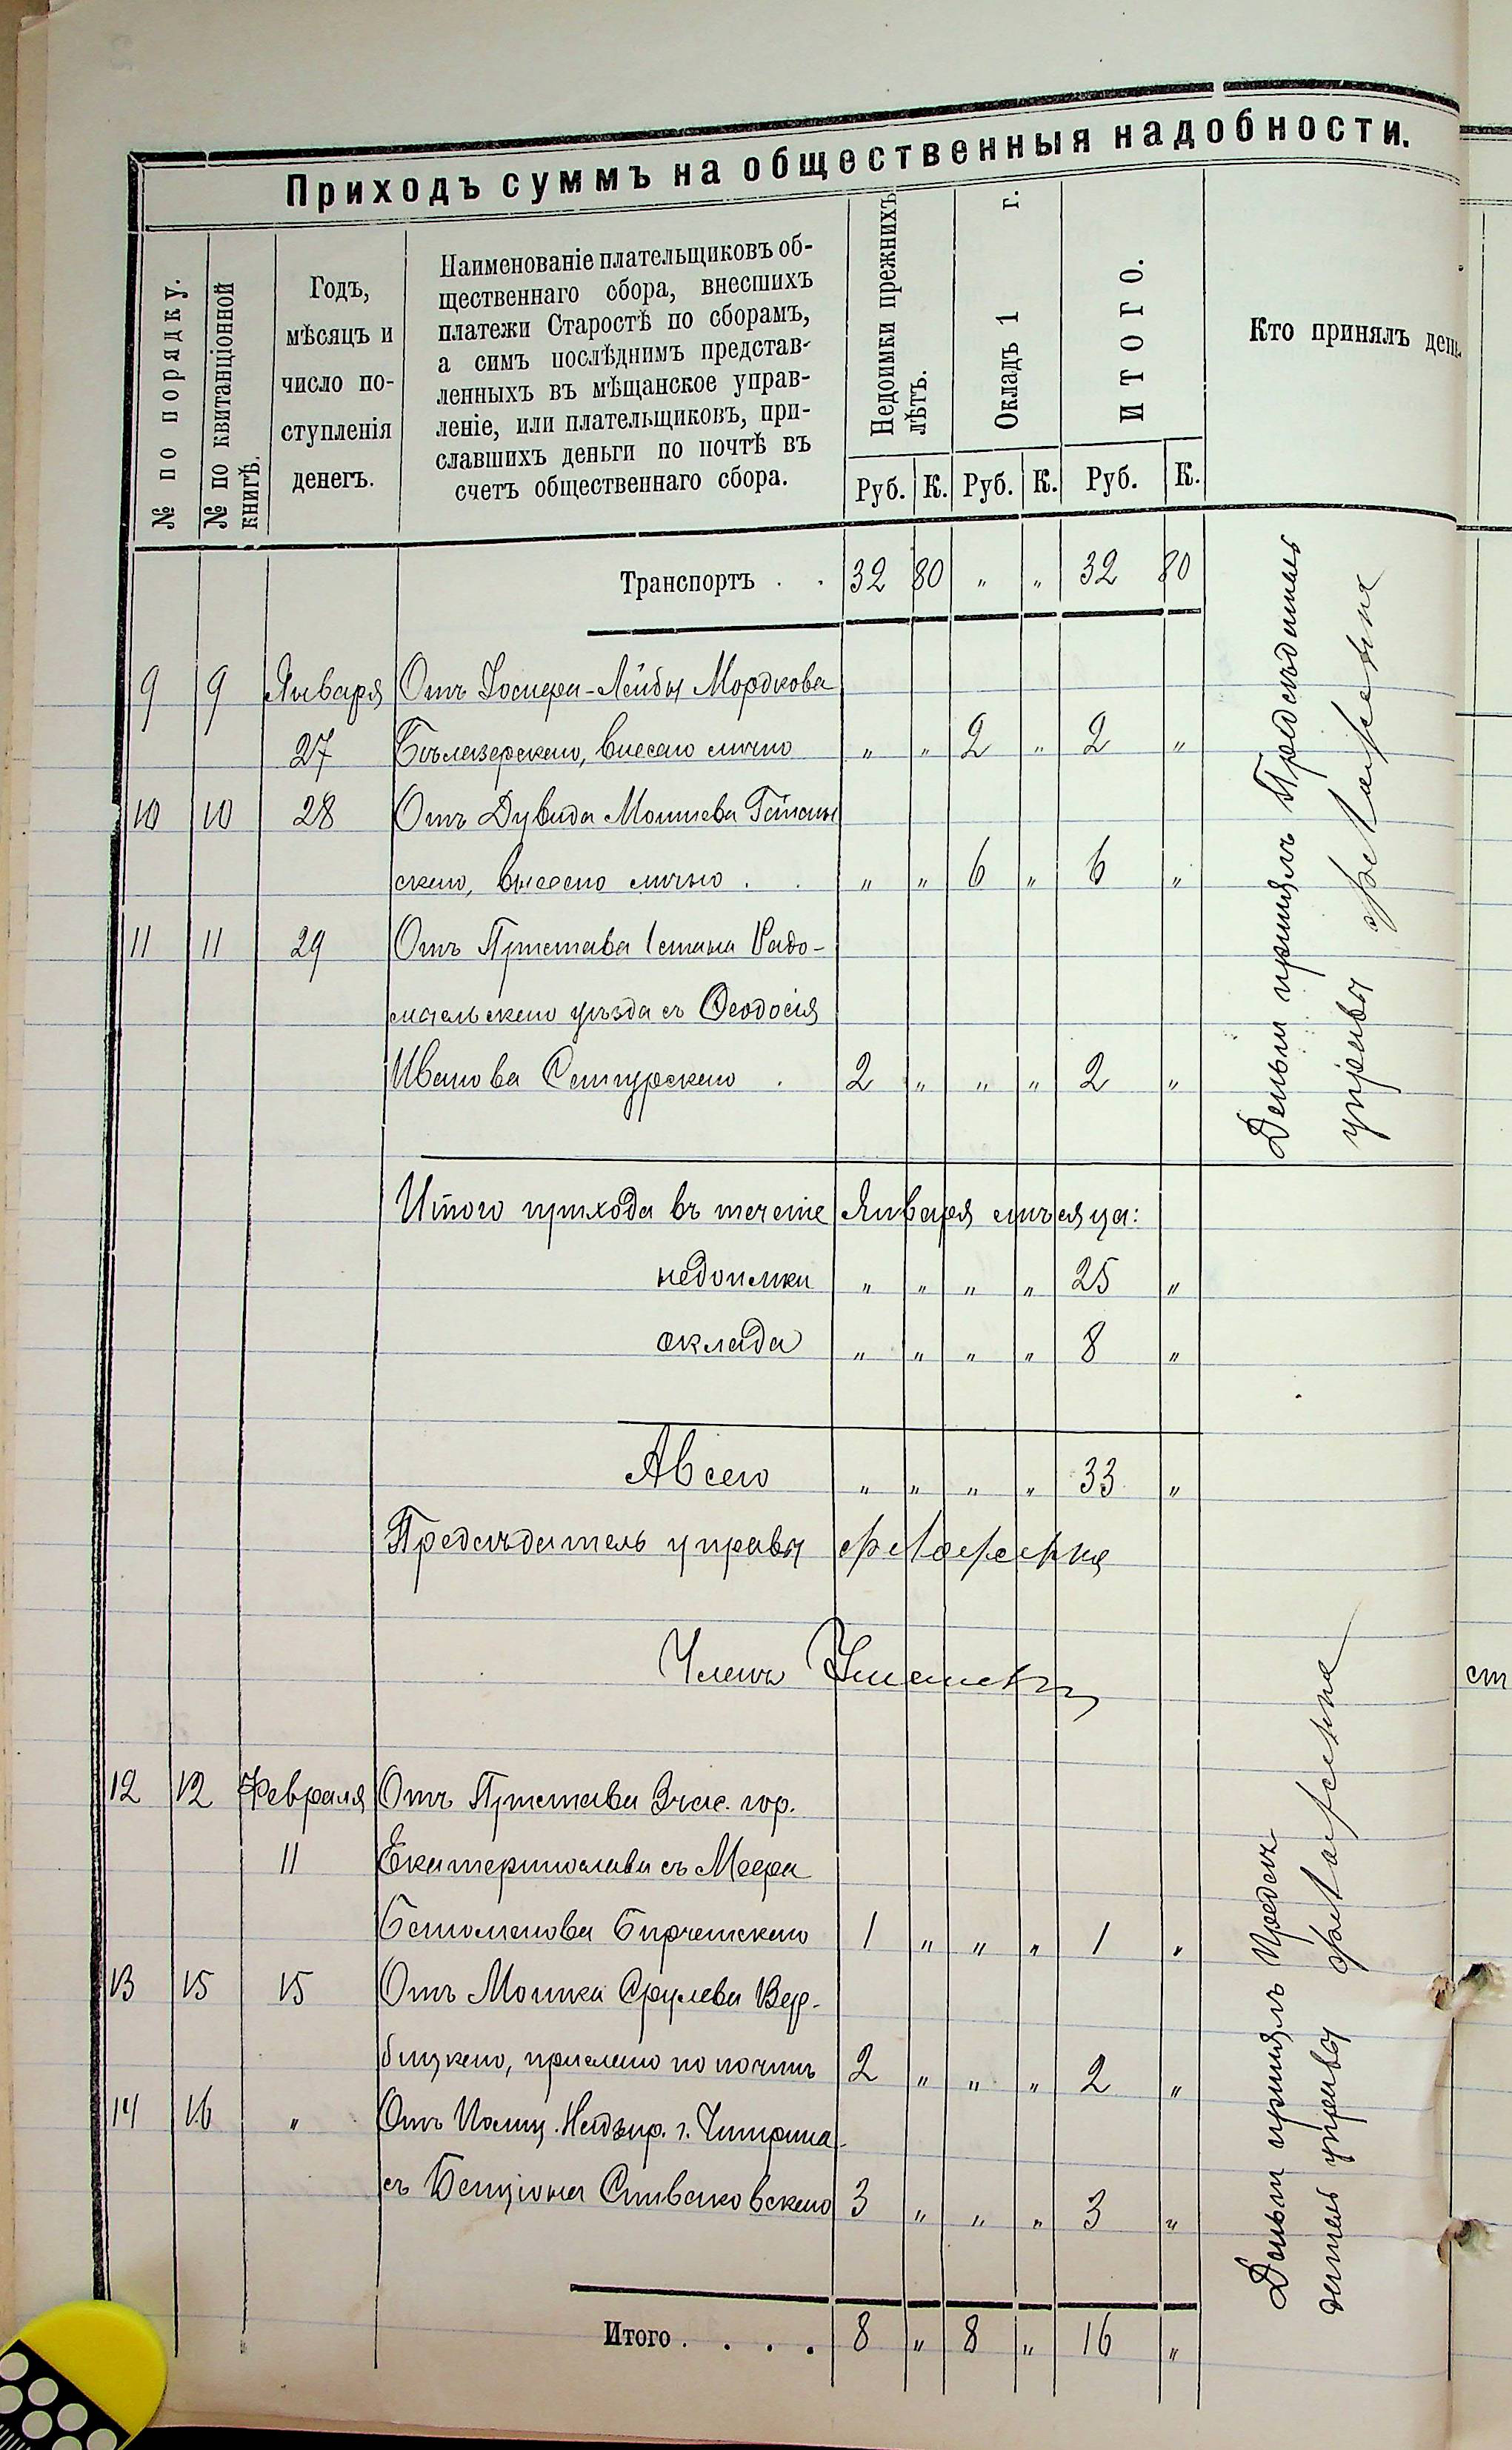 Приходъ суммъ на общественныя надобности.
№ по порядку.
№ по квитанціонной книгѣ.
Годъ,
мѣсяцъ и
число по-
ступленія
денегъ.
Наименованіе плательщиковъ об-
щественнаго сбора, внесшихъ
платежи Старостѣ по сборамъ,
а симъ послѣднимъ представ-
ленныхъ въ мѣщанское управ-
леніе, или плательщиковъ, при-
славшихъ деньги по почтѣ въ
счетъ общественнаго сбора.
Недоимки прежнихъ
лѣтъ.
Окладъ 1 г.
ИТОГО.
Кто принялъ ден
Руб. К. Руб. К. Руб. К.
Транспортъ . . 32 80 " " 32 80
9 9 Января Отъ Іосифа-Лейбы Мордкова
27 Бѣлозерскаго, внесено лично " " 2 " 2 "
10 10 28 Отъ Дувида Мошкева
скаго, внесено лично . . " " 6 " 6 "
11 11 29 Отъ Пристава 1 стана Радо-
мысльскаго уѣзда съ Ѳеодосія
Иванова . 2 " " " 2 "
Деньги принялъ Предсѣдатель
управы
Итого прихода въ теченіе Января мѣсяца:
недоимки " " " " 25 "
оклада " " " " 8 "
А всего " " " " 33 "
Предсѣдатель управы
Членъ
12 12 Февраля Отъ Пристава 3 час. гор.
11 Екатеринослава съ Меера
1 " " " 1 "
13 15 15 Отъ Мошка Срулева Вер-
бицкаго, прислано по почтѣ 2 " " " 2 "
14 16 " Отъ Полиц. Надзир. г. Чигирина
съ Бенціона Спиваковскаго 3 " " " 3 "
Деньги принялъ Предсѣ-
датель управы
Итого . . . . 8 " 8 " 16 "
ст